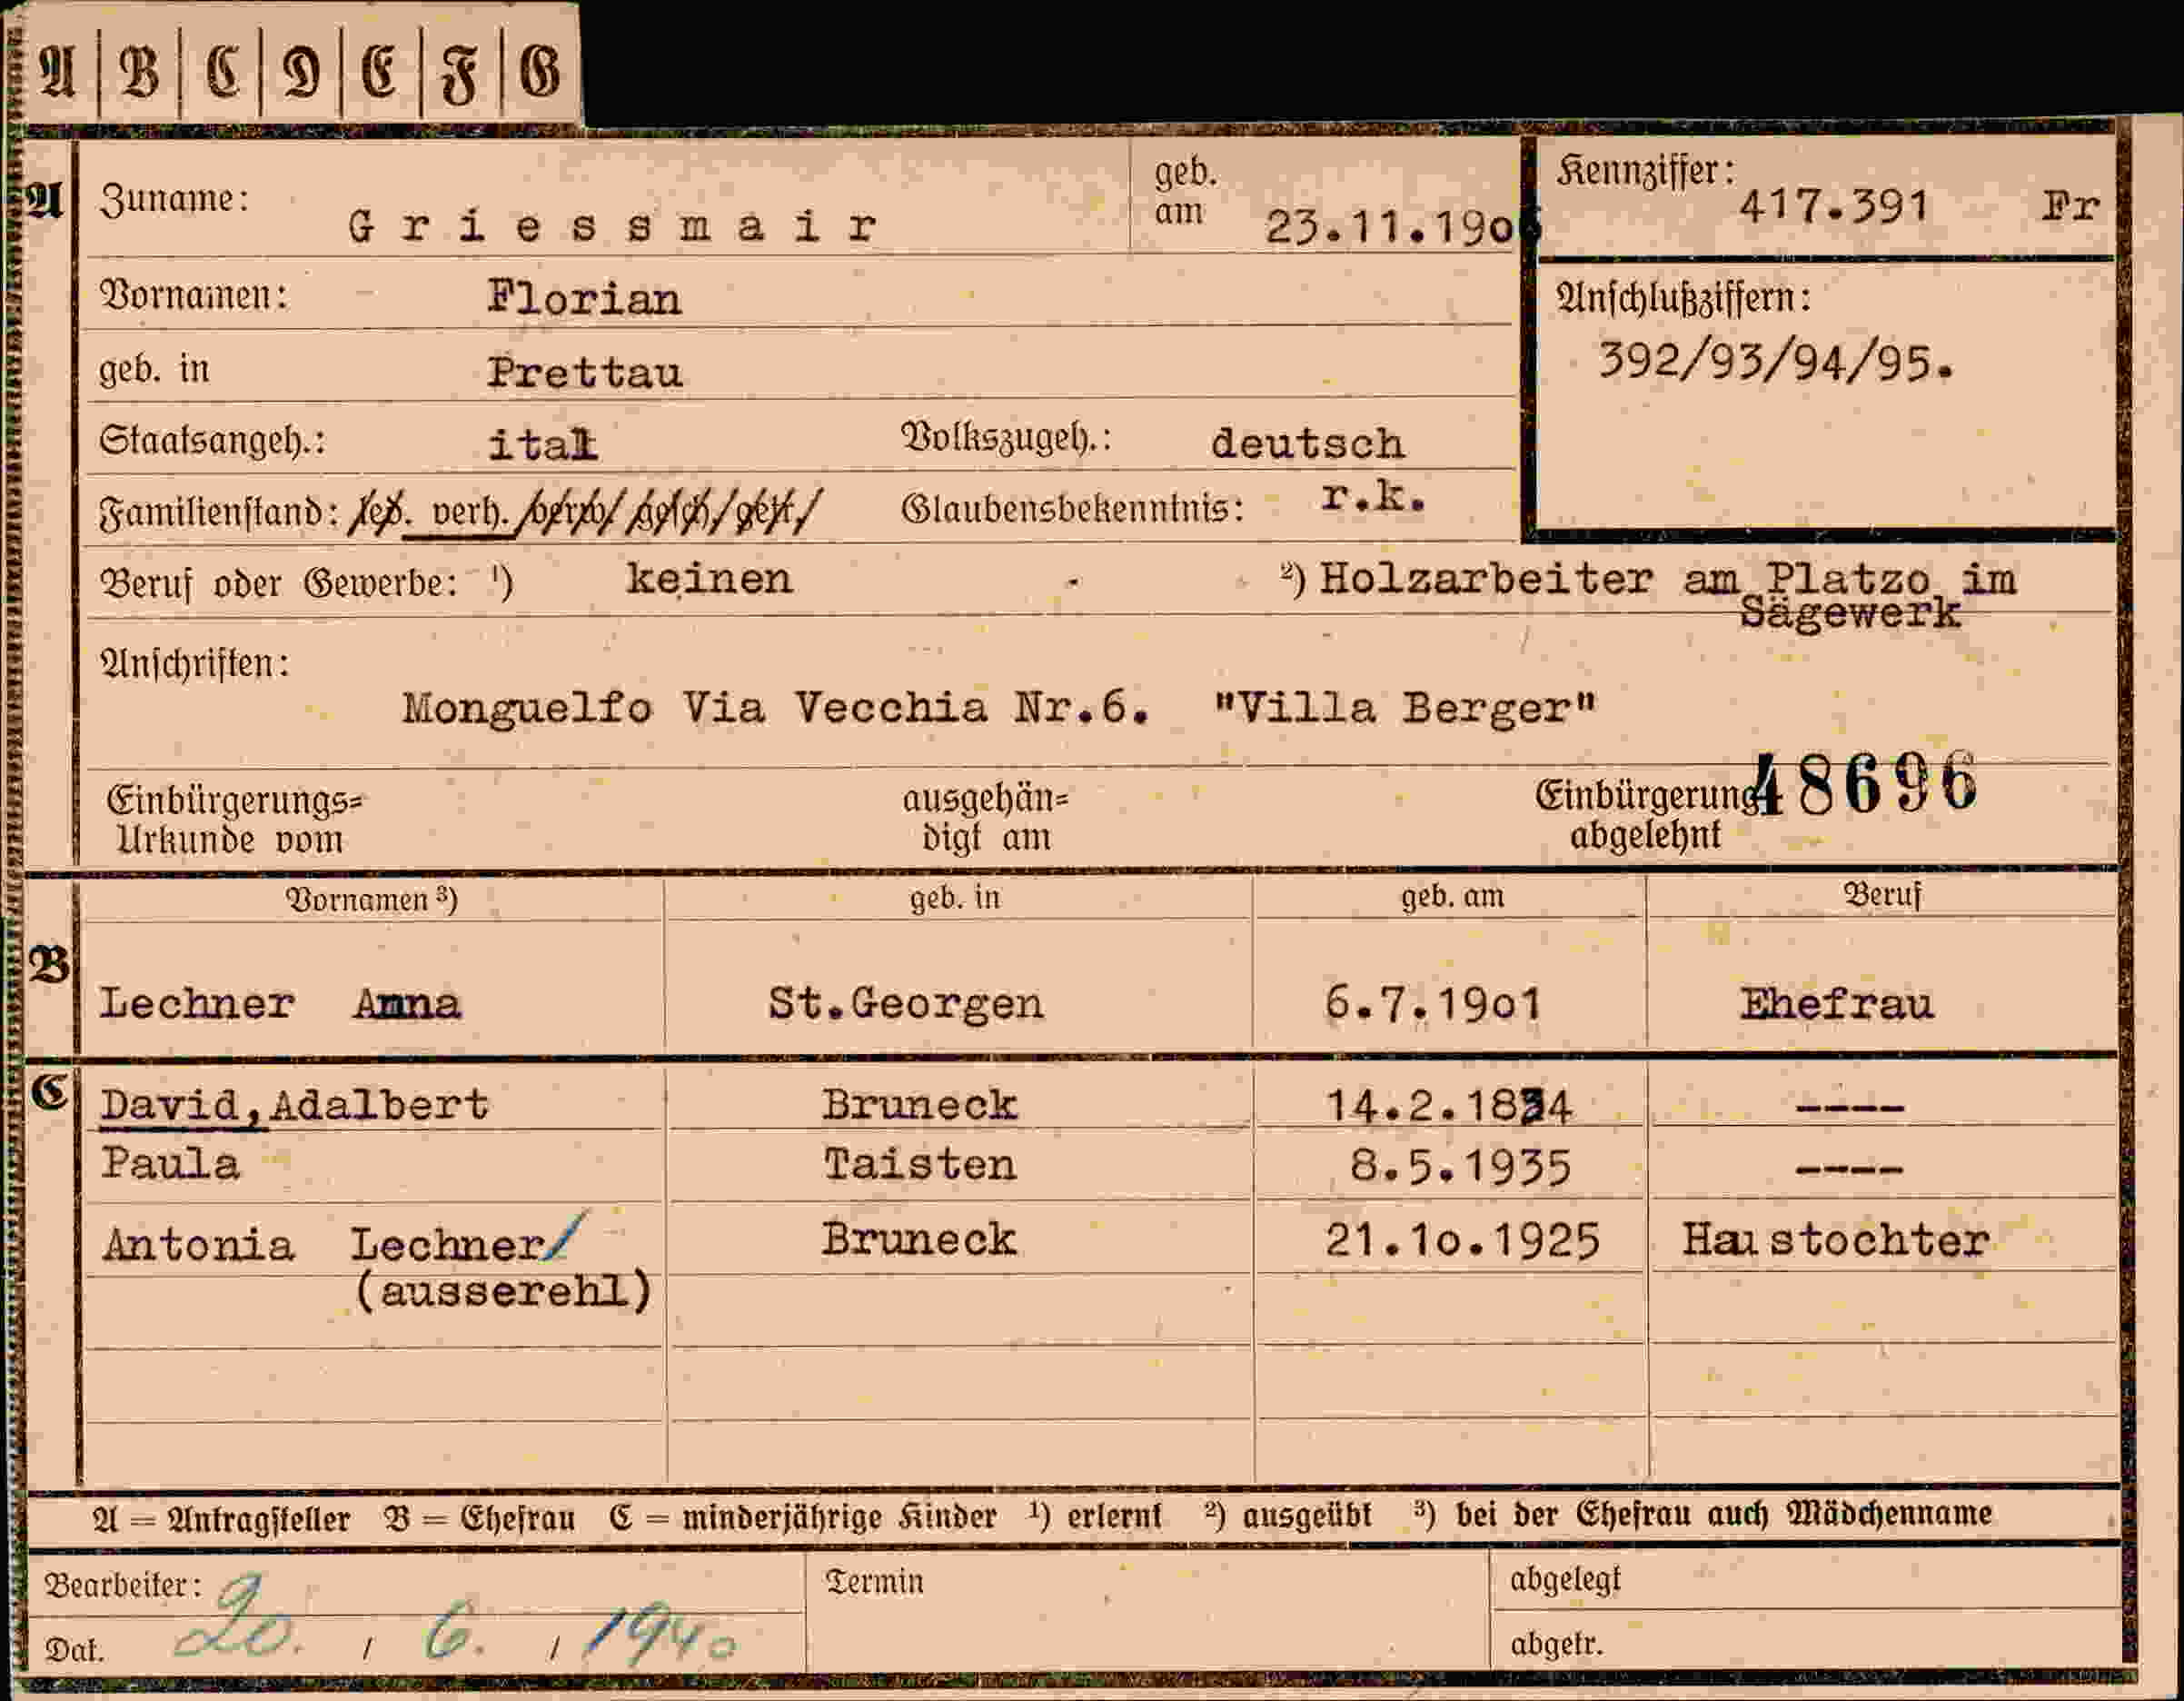 A B C D E F G
A Zuname: Griessmair geb. am 23.11.190 Kennziffer: 417.391 Fr
Vornamen: Florian Anschlußziffern:
geb. in Prettau 392/93/94/95.
Staatsangeh.: ital Volkszugeh.: deutsch
Familienstand: led. verh. verw. gesch. getr. Glaubensbekenntnis: r.k.
Beruf oder Gewerbe: ¹) keinen ²) Holzarbeiter am Platzo im
Sägewerk
Anschriften:
Monguelfo Via Vecchia Nr.6. "Villa Berger"
48696
Einbürgerungs= ausgehän= Einbürgerung
Urkunde vom digt am abgelehnt
Vornamen ³) geb. in geb. am Beruf
B
Lechner Anna St.Georgen 6.7.1901 Ehefrau
C David, Adalbert Bruneck 14.2.1834 ----
Paula Taisten 8.5.1935 ----
Antonia Lechner/ Bruneck 21.10.1925 Haustochter
(ausserehl)
A = Antragsteller B = Ehefrau C = minderjährige Kinder ¹) erlernt ²) ausgeübt ³) bei der Ehefrau auch Mädchenname
Bearbeiter: Termin abgelegt
Dat. 20. / 6. / 1940 abgetr.